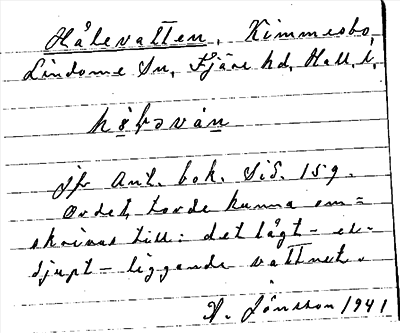 Hålevatten, Kimmesbo,
Lindome Sn, Fjäre hd, Hall. l.
Jfr Ant. bok. Sid. 159.
Ordet torde kunna om=
skrivas till: det lågt- el.
djupt- liggande vattnet.
A. Jönsson 1941